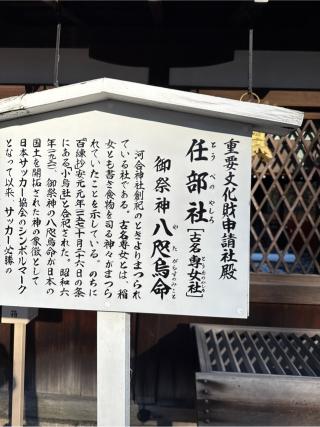 重要文化財申請社殿
とうべのやしろ
任部社
とうめのやしろ
[古名専女社]
やたがらすのみこと
御祭神 八咫烏命
河合神社創祀のときよりまつられ
ている社である。古名専女とは、稲
女とも書き食物を司る神々がまつら
れていたことを示している。のちに
『百練抄』安元元年(一一七五)十月二十六日の条
にある「小烏社」と合祀された。昭和六
年(一九三一)、御祭神の八咫烏命が日本の
国土を開拓された神の象徴として
日本サッカー協会のシンボルマーク
となって以来、サッカー必勝の